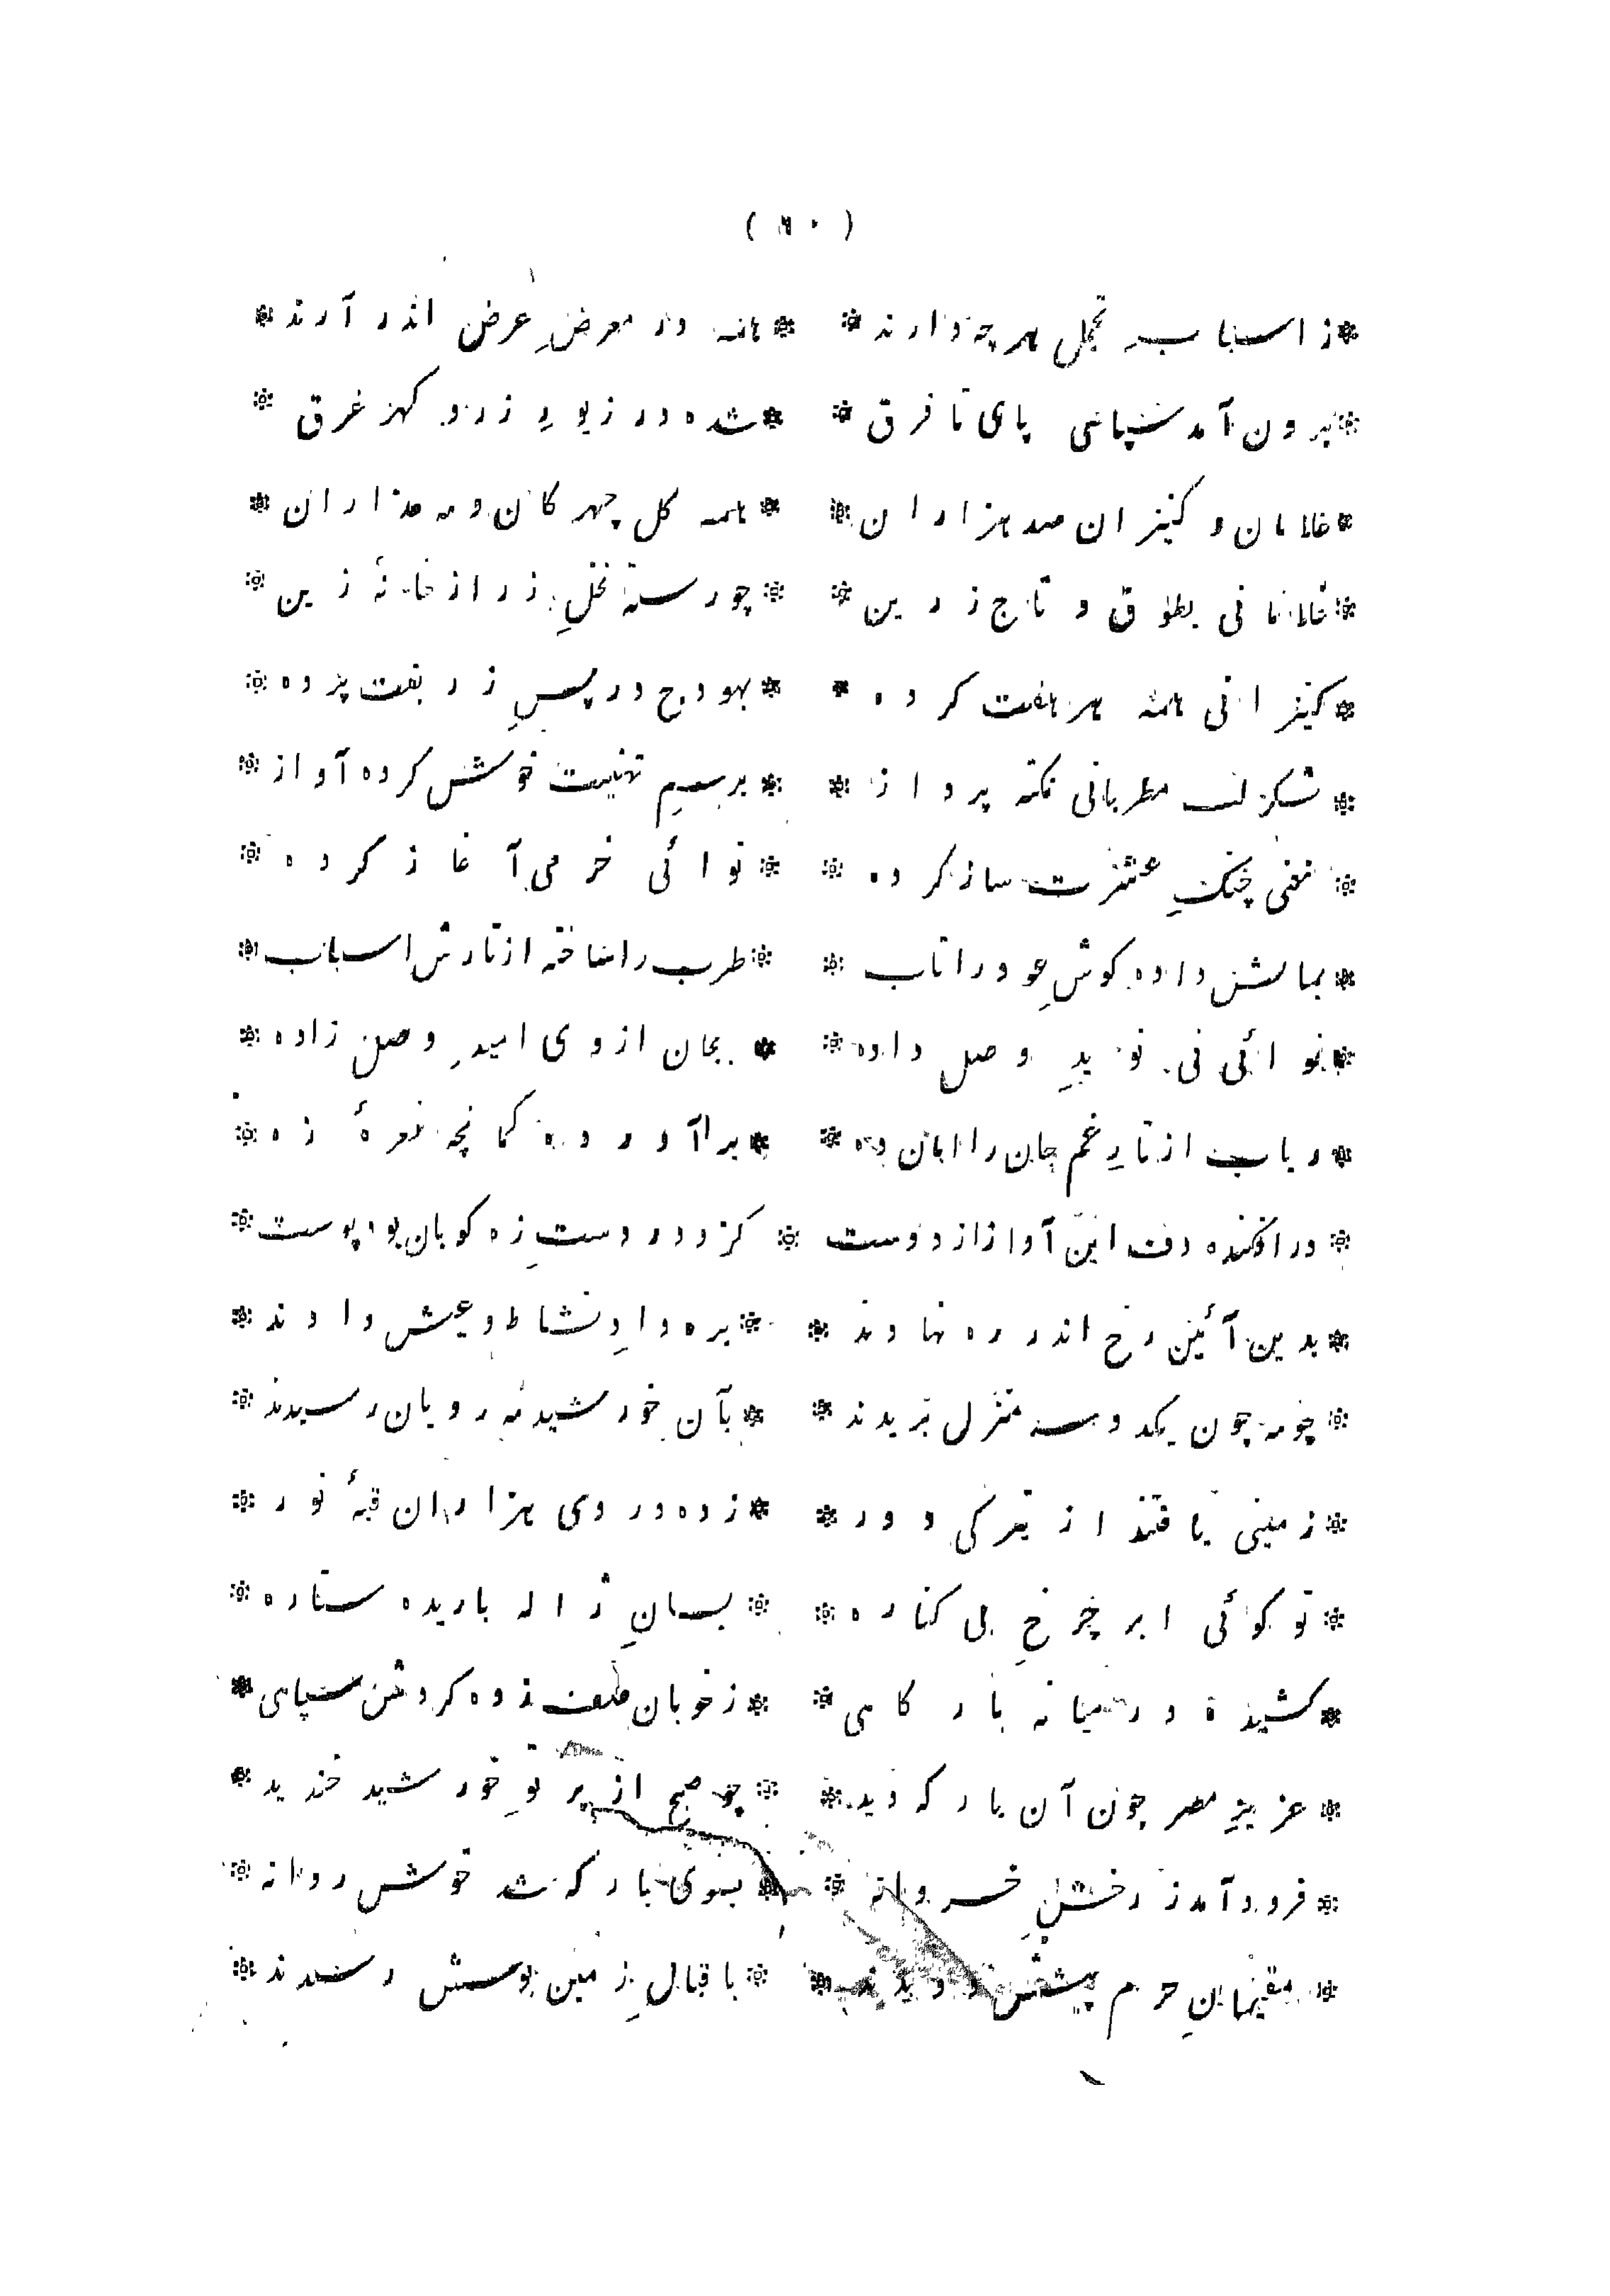 ( ۹۰ )
* ز اسباب تجمل هرچه دارند * * همه در معرضِ عرض اندر آرند *
* برون آمد سپاهی پای تا فرق * * شده در زیورِ زر و کهر غرق *
* غلامان و کنیزان صد هزاران * * همه کل چهرکان و مه عذاران *
* غلامانی بطوق و تاج زرین * * چو رسته نخلِ زر از خانهٔ زین *
* کنیزانی همه هر هفت کرده * * بهودج در پسِ زربفت پرده *
* شکر لب مطربانی نکته پرداز * * برسمِ تهنیت خوش کرده آواز *
* مغنی چنکِ عشرت ساز کرده * * نوائی خرمی آغاز کرده *
* بمالش داده کوشِ عود را تاب * * طرب را ساخته از تارش اسباب *
* نوائی نی نویدِ وصل داده * * بجان از وی امیدِ وصل زاده *
* رباب از تارِ غم جان را امان ده * * بر آورده کمانچه نعرهٔ زه *
* در افکنده دف این آواز از دوست * کز و در دستِ ره کوبان بود پوست *
* بدین آئین رخ اندر ره نهادند * * بره دادِ نشاط و عیش دادند *
* چو مه چون یکدو سه منزل بریدند * * بآن خورشید مه رویان رسیدند *
* زمینی یافتند از تیرکی دور * * زده در وی هزاران قبهٔ نور *
* تو کوئی ابر چرخِ بی کناره * * بسانِ ژاله باریده ستاره *
* کشیده در میانه بارکاهی * * ز خوبان صف زده کردش سپاهی *
* عزیزِ مصر چون آن بارکه دید * * چو صبح از پرتوِ خورشید خندید *
* فرود آمد ز رخشِ خسروانه * * بسوی بارکه شد خوش روانه *
* مقیمانِ حرم پیشش دویدند * * باقبالِ زمین بوسش رسیدند *